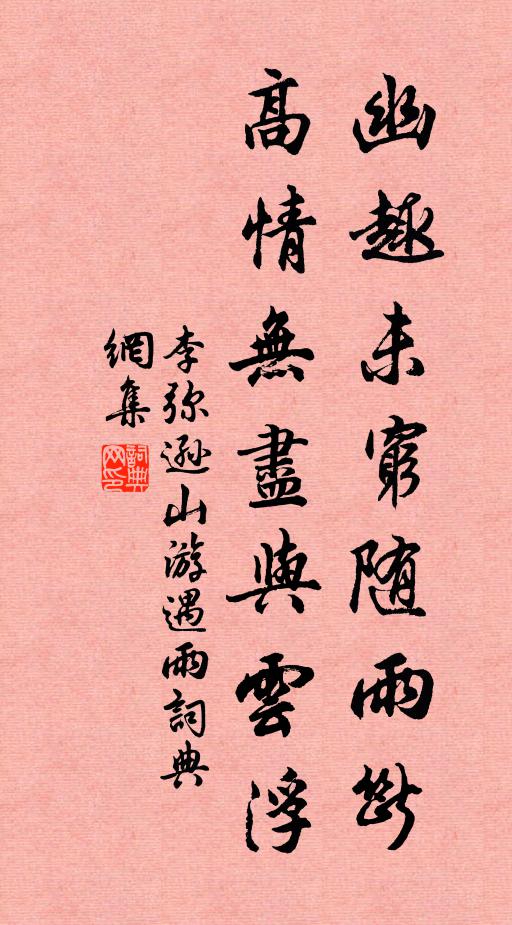 幽趣未窮随雨斷
高情無盡與雲浮
李弥遜山游遇雨詞典
網集
詞典
网印